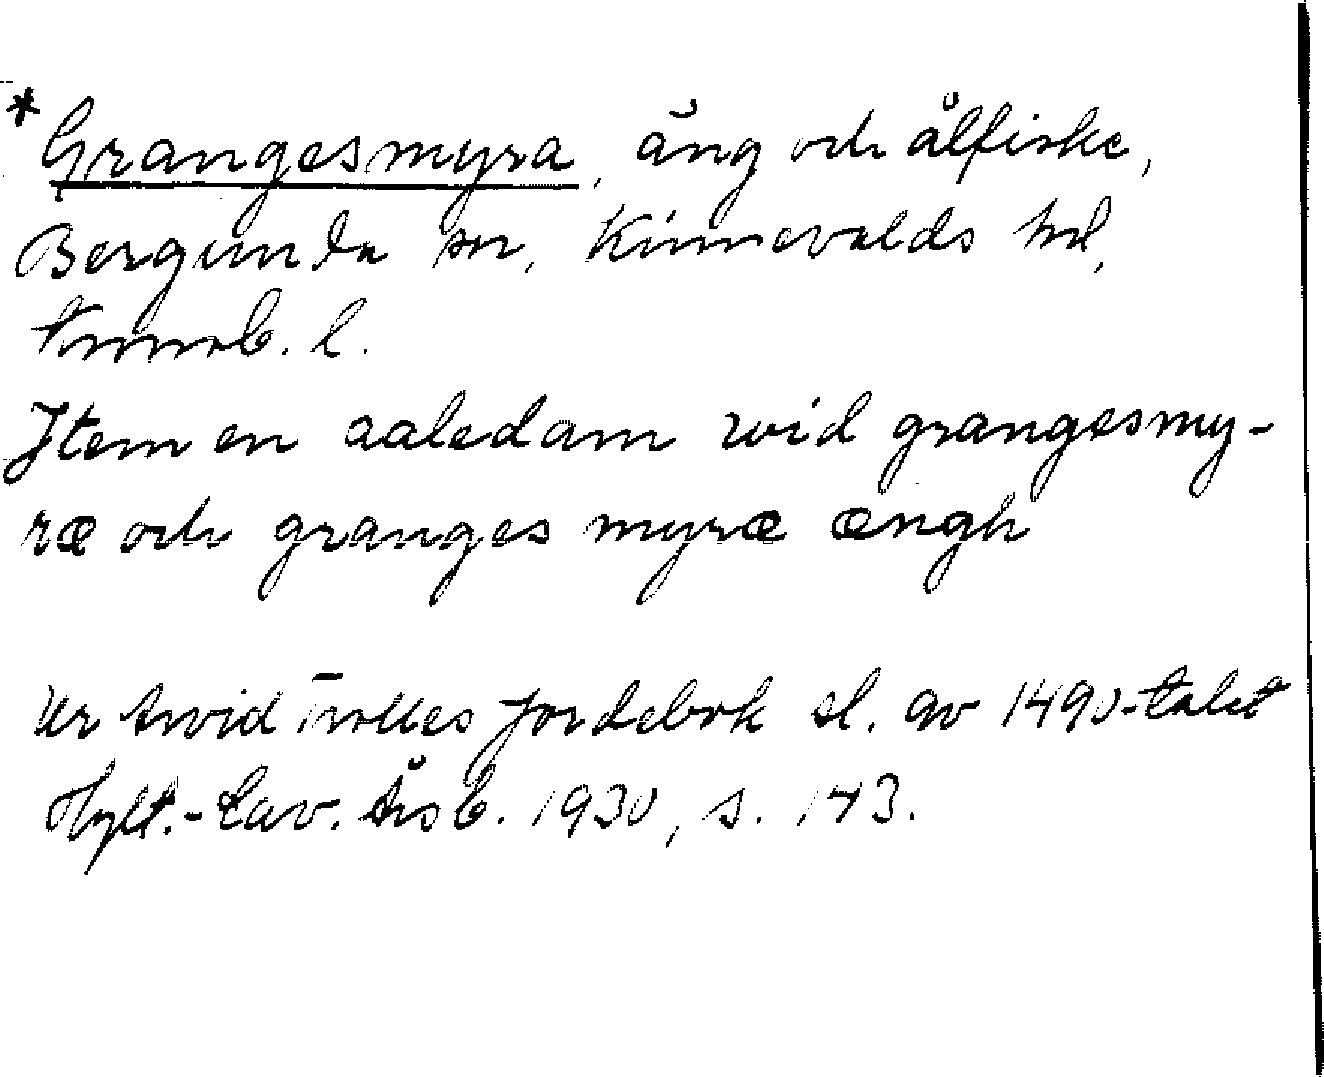 *Grangesmyra, äng och ålfiske,
Bergunda sn, Kinnevalds hd,
Kronob. l.
Item en aaledam wid grangesmy-
ræ och granges myræ ængh
Ur Arvid Trolles Jordebok sl. av 1490-talet
Hylt.-Cav. Årsb. 1930, s. 143.